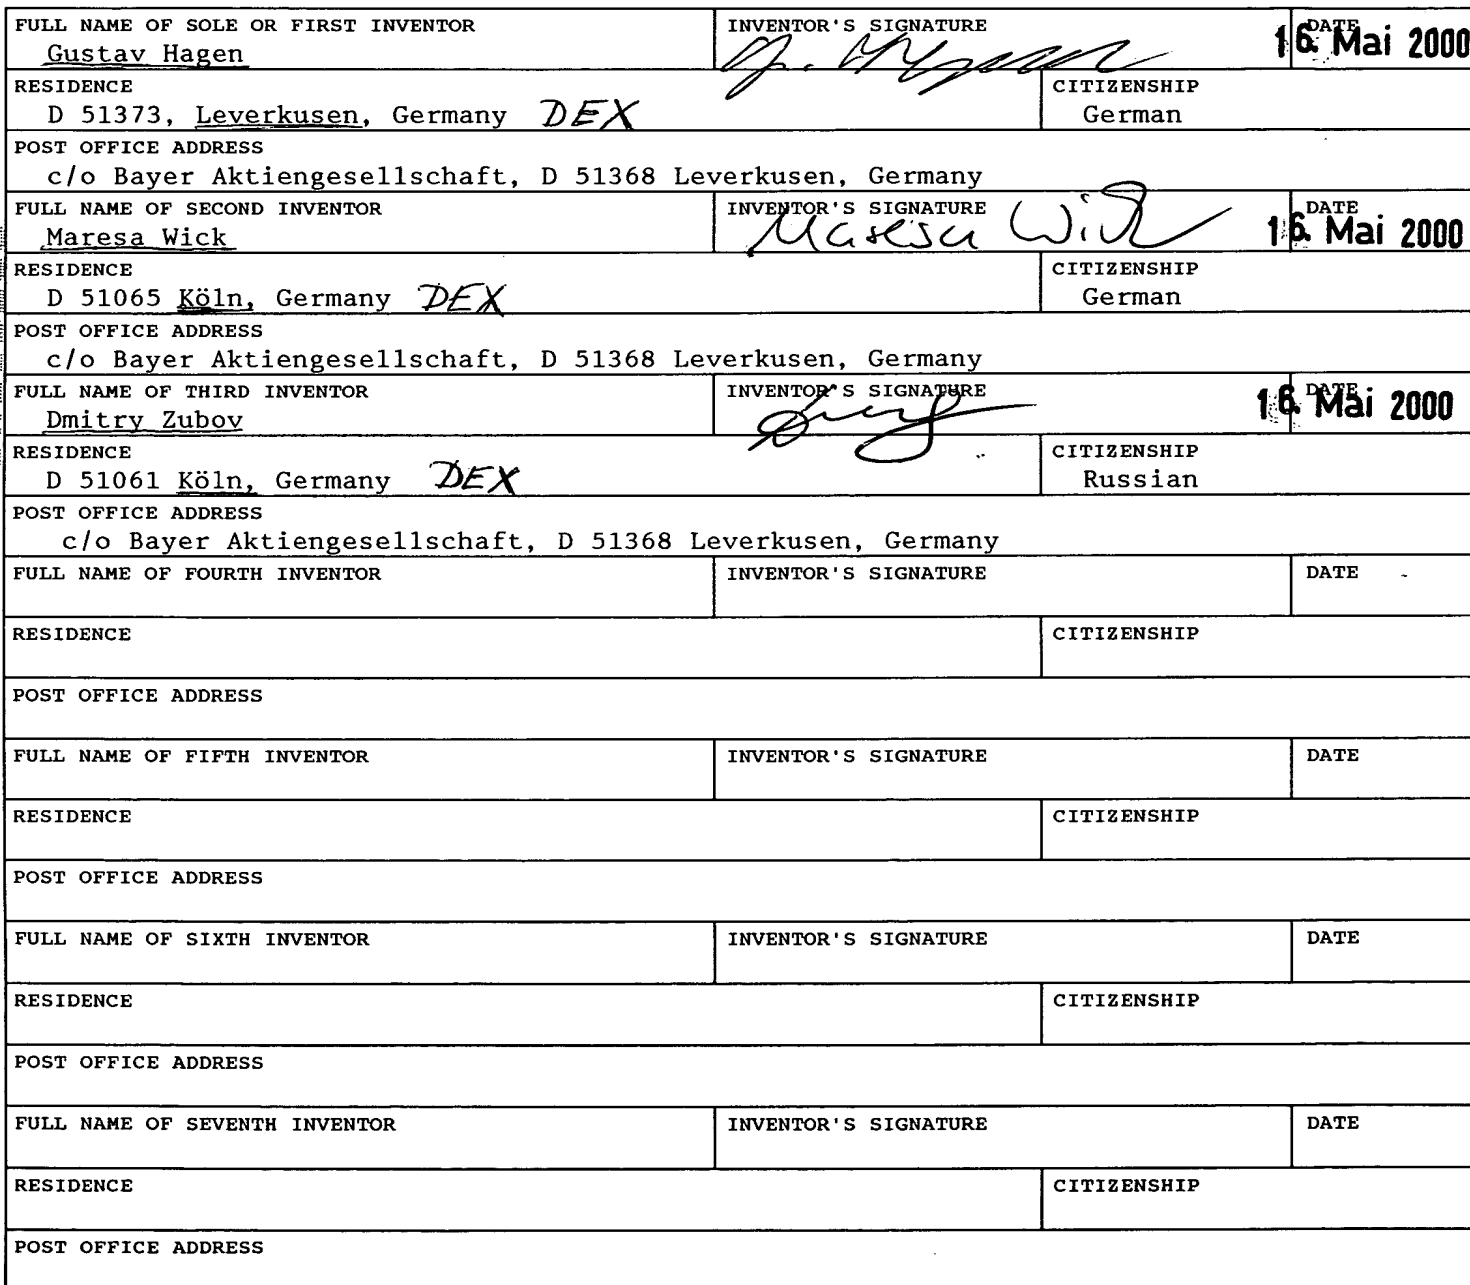 FULL NAME OF SOLE OR FIRST INVENTOR INVENTOR'S SIGNATURE DATE
Gustav Hagen 16. Mai 2000
RESIDENCE CITIZENSHIP
D 51373, Leverkusen, Germany DEX German
POST OFFICE ADDRESS
c/o Bayer Aktiengesellschaft, D 51368 Leverkusen, Germany
FULL NAME OF SECOND INVENTOR INVENTOR'S SIGNATURE DATE
Maresa Wick Maresa Wick 16. Mai 2000
RESIDENCE CITIZENSHIP
D 51065 Köln, Germany DEX German
POST OFFICE ADDRESS
c/o Bayer Aktiengesellschaft, D 51368 Leverkusen, Germany
FULL NAME OF THIRD INVENTOR INVENTOR'S SIGNATURE DATE
Dmitry Zubov 16. Mai 2000
RESIDENCE CITIZENSHIP
D 51061 Köln, Germany DEX Russian
POST OFFICE ADDRESS
c/o Bayer Aktiengesellschaft, D 51368 Leverkusen, Germany
FULL NAME OF FOURTH INVENTOR INVENTOR'S SIGNATURE DATE
RESIDENCE CITIZENSHIP
POST OFFICE ADDRESS
FULL NAME OF FIFTH INVENTOR INVENTOR'S SIGNATURE DATE
RESIDENCE CITIZENSHIP
POST OFFICE ADDRESS
FULL NAME OF SIXTH INVENTOR INVENTOR'S SIGNATURE DATE
RESIDENCE CITIZENSHIP
POST OFFICE ADDRESS
FULL NAME OF SEVENTH INVENTOR INVENTOR'S SIGNATURE DATE
RESIDENCE CITIZENSHIP
POST OFFICE ADDRESS